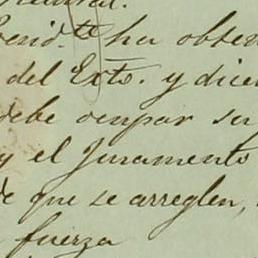 ha obser
del Exto. y dice
debe ocupar su
y el Juramento
de que se arreglen,
fuerza